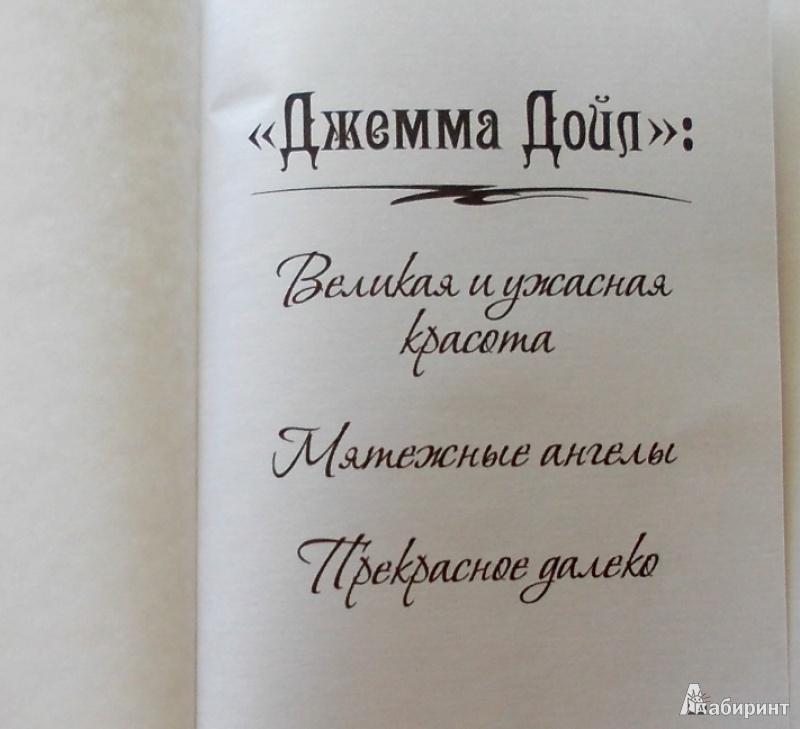 «Джемма Дойл»:
Великая и ужасная
красота
Мятежные ангелы
Прекрасное далеко
Лабиринт